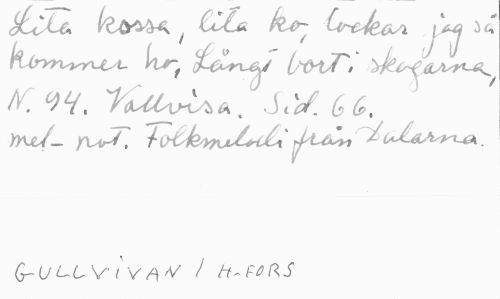 Lita kossa, lita ko, lockar jag så
kommer ho, Långt bort i skogarna,
N. 94. Vallvisa. Sid. 66.
mel- not. Folkmelodi från Dalarna.
GULLVIVAN / H-FORS